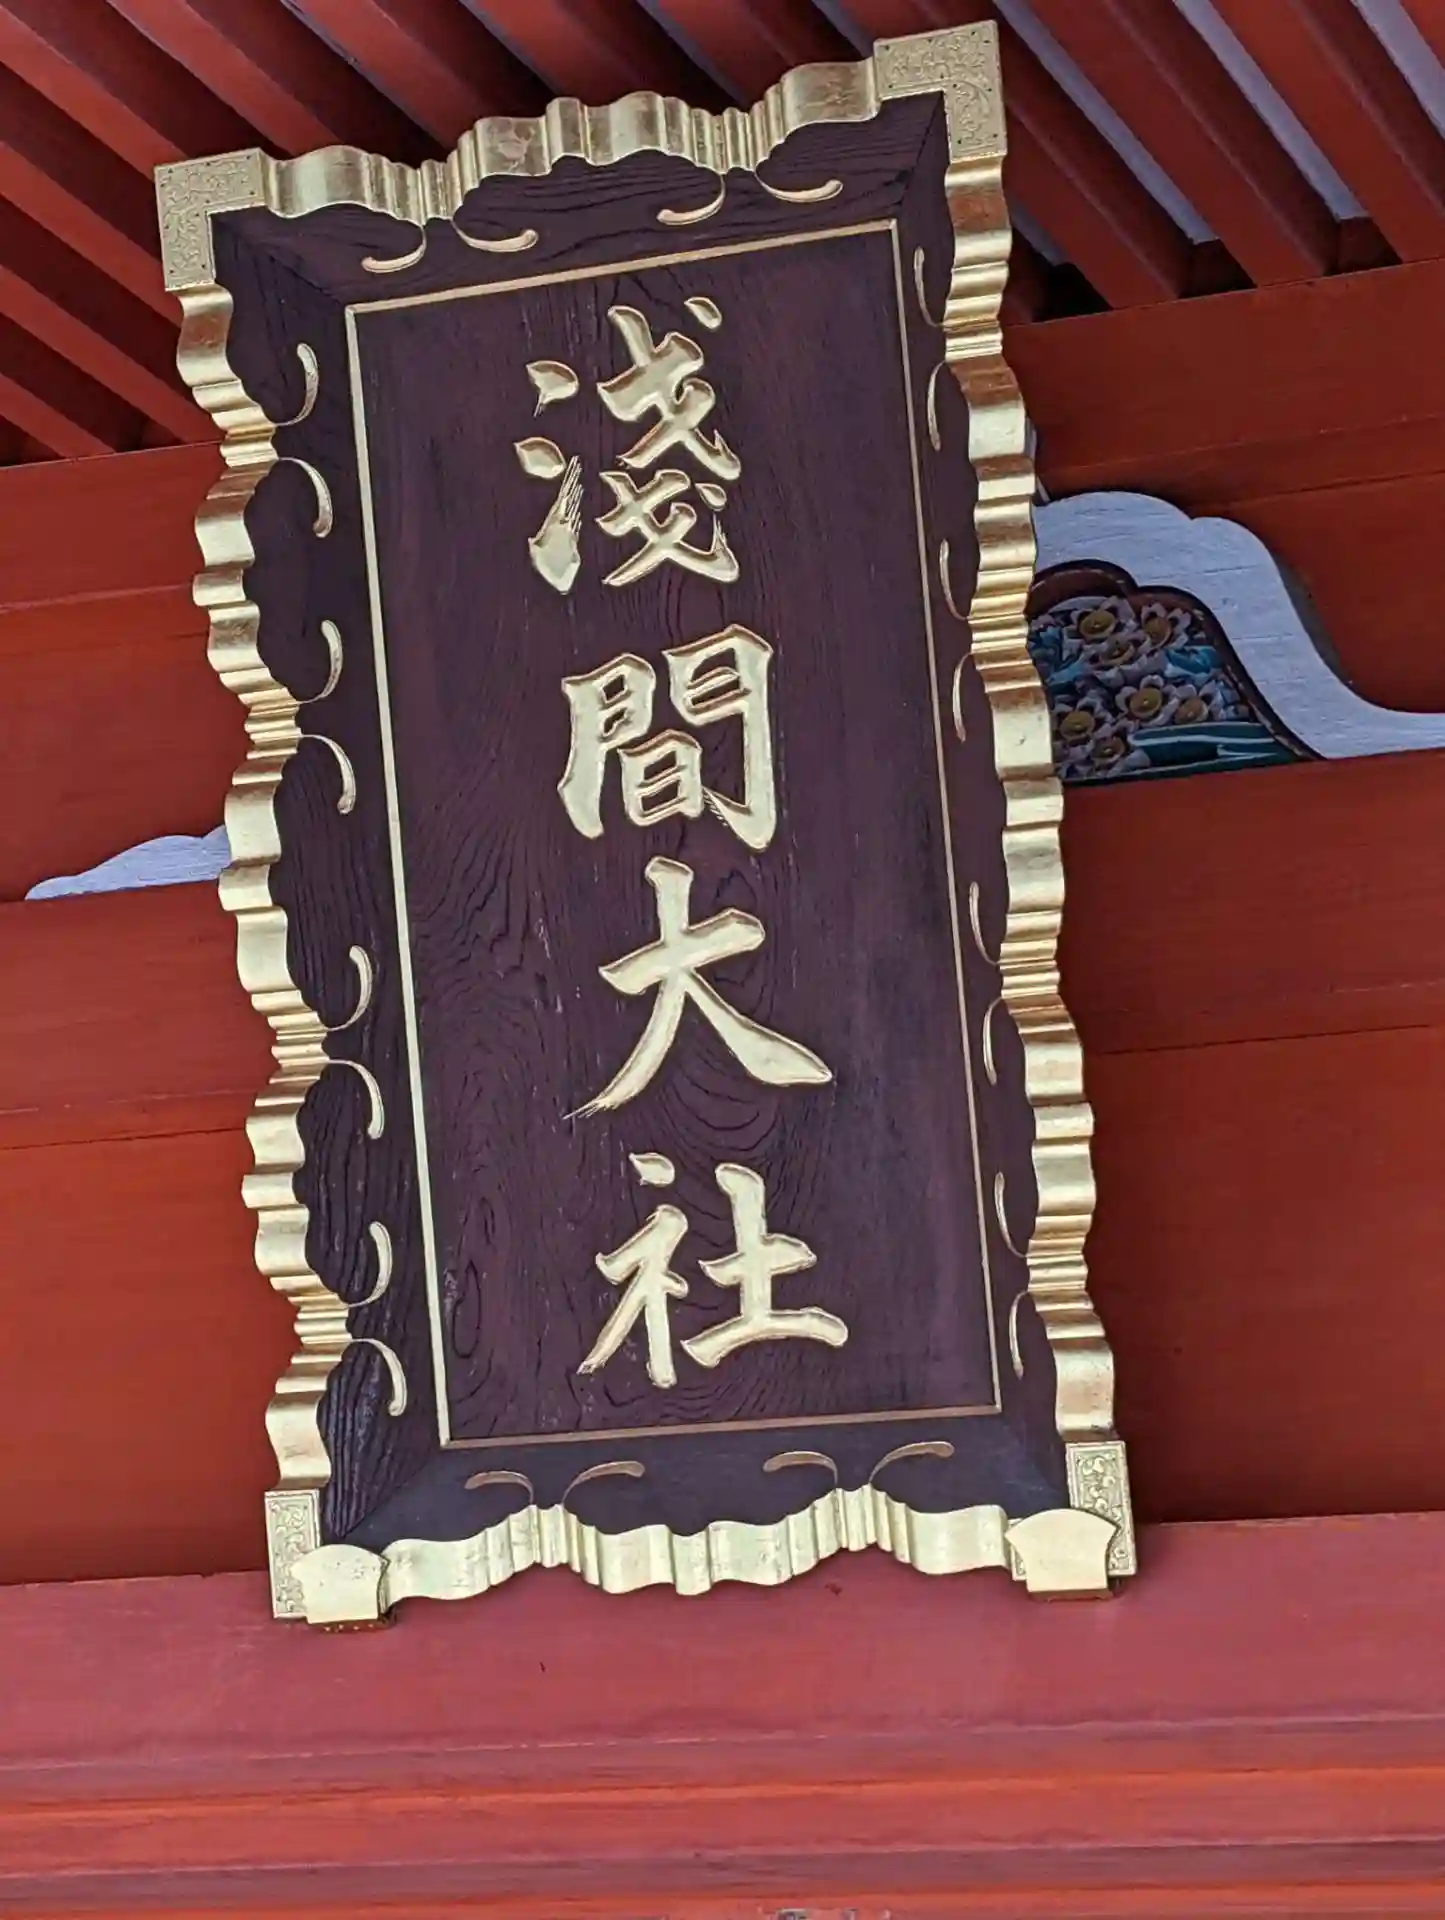 淺間大社